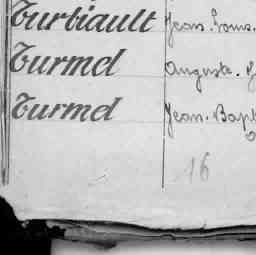 Turbiault Jean. Louis.
Turmel Auguste.
Turmel Jean. Bap
16